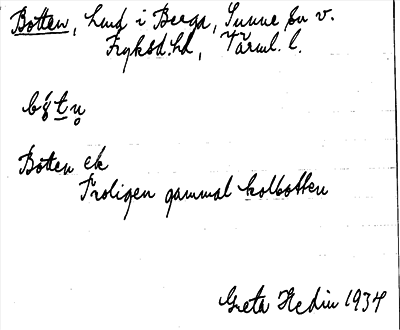 Botten, hmd i Berga, Sunne sn v.
Fryksd. hd, Värml. l.
bǫ́tn̥
Botten ek
Troligen gammal kolbotten
Greta Hedin 1934